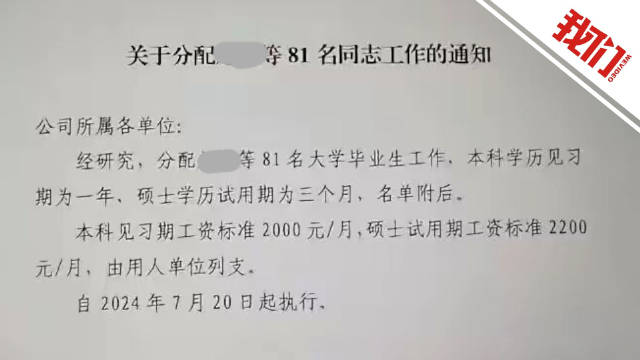 我们
WEVIDEO
关于分配 等81名同志工作的通知
公司所属各单位：
经研究，分配 等81名大学毕业生工作，本科学历见习
期为一年，硕士学历试用期为三个月，名单附后。
本科见习期工资标准2000元/月，硕士试用期工资标准2200
元/月，由用人单位列支。
自2024年7月20日起执行。